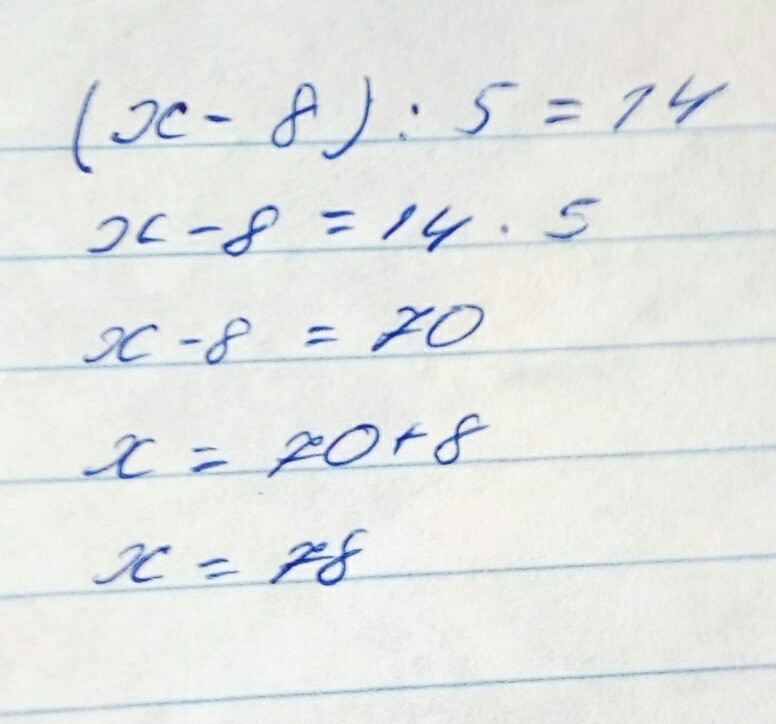 (x - 8) : 5 = 14
x - 8 = 14 · 5
x - 8 = 70
x = 70 + 8
x = 78